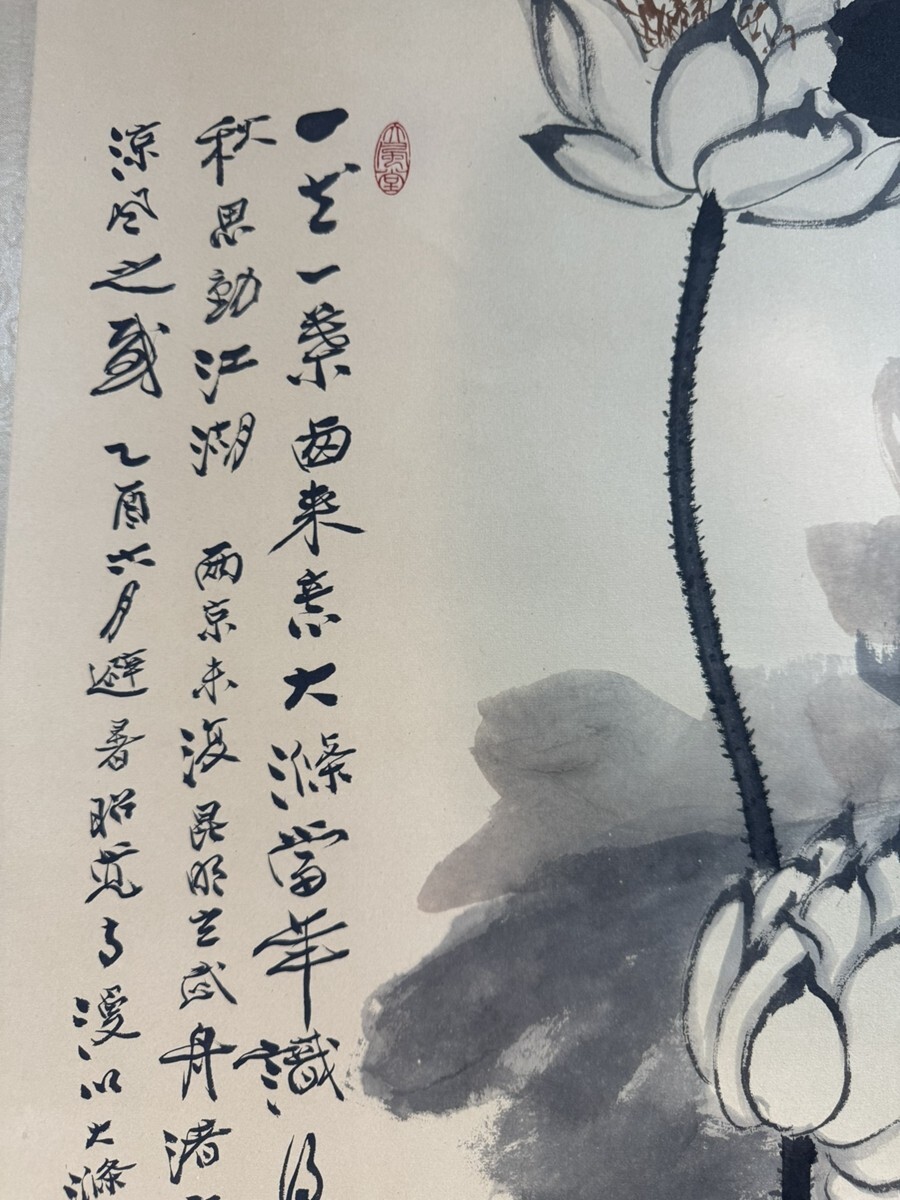 大風堂
一花一葉西來意大滌當年識得
秋思動江湖 兩京未復昆明玄武舟渚
涼風之感 乙酉六月避暑昭覺寺漫以大滌